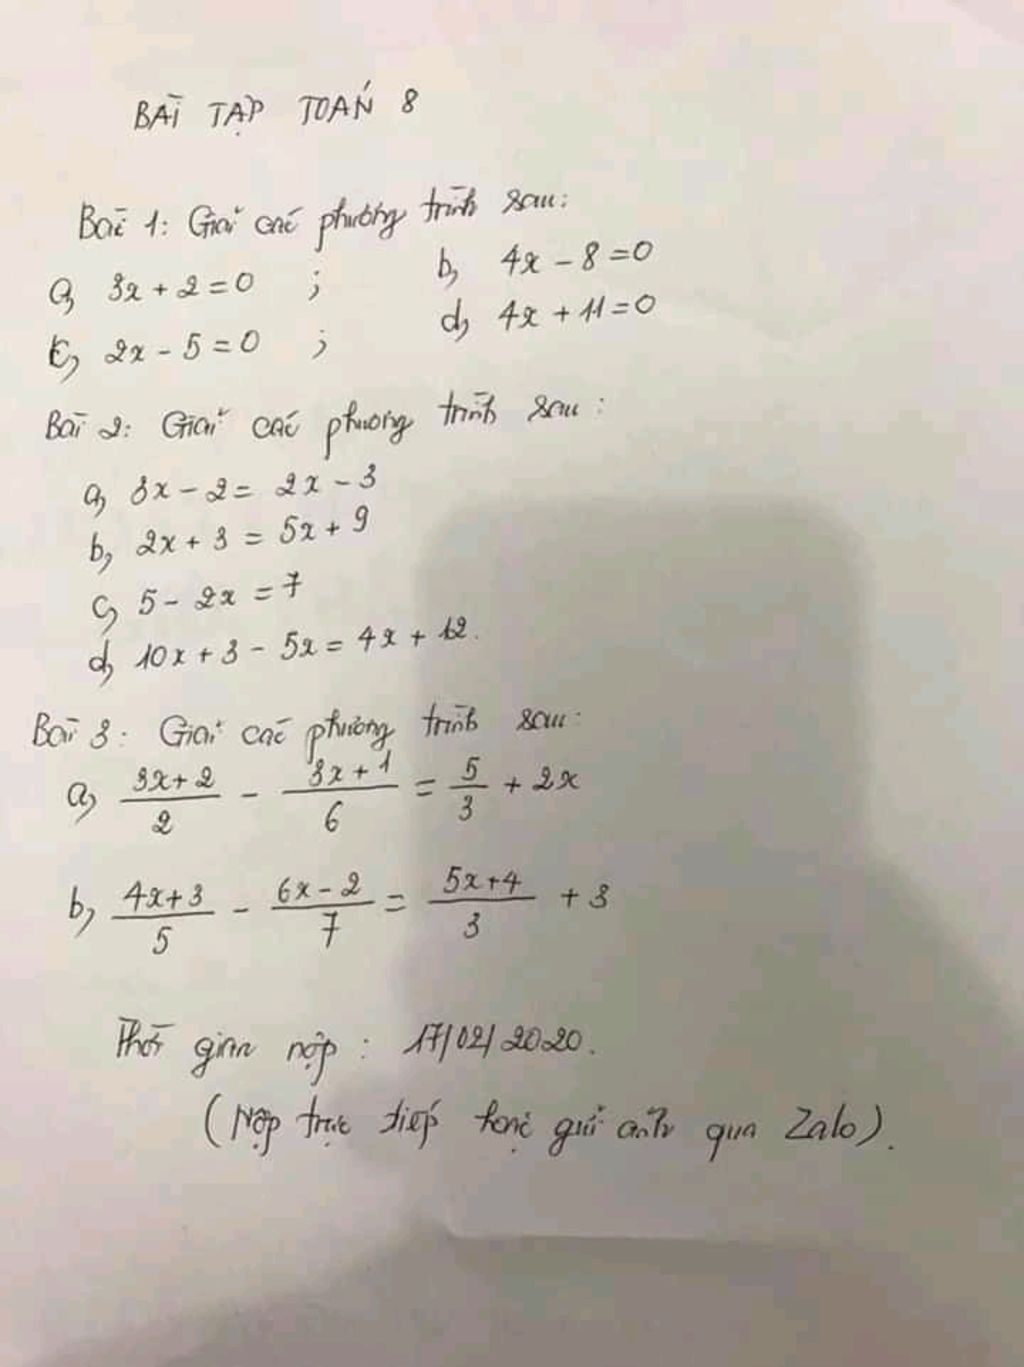 BÀI TẬP TOÁN 8
Bài 1: Giải các phương trình sau:
a, 3x + 2 = 0 ; b, 4x - 8 = 0
c, 2x - 5 = 0 ; d, 4x + 11 = 0
Bài 2: Giải các phương trình sau:
a, 3x - 2 = 2x - 3
b, 2x + 3 = 5x + 9
c, 5 - 2x = 7
d, 10x + 3 - 5x = 4x + 12.
Bài 3: Giải các phương trình sau:
a, (3x+2)/2 - (3x+1)/6 = 5/3 + 2x
b, (4x+3)/5 - (6x-2)/7 = (5x+4)/3 + 3
Thời gian nộp : 17/02/2020.
(Nộp trực tiếp hoặc gửi ảnh qua Zalo).